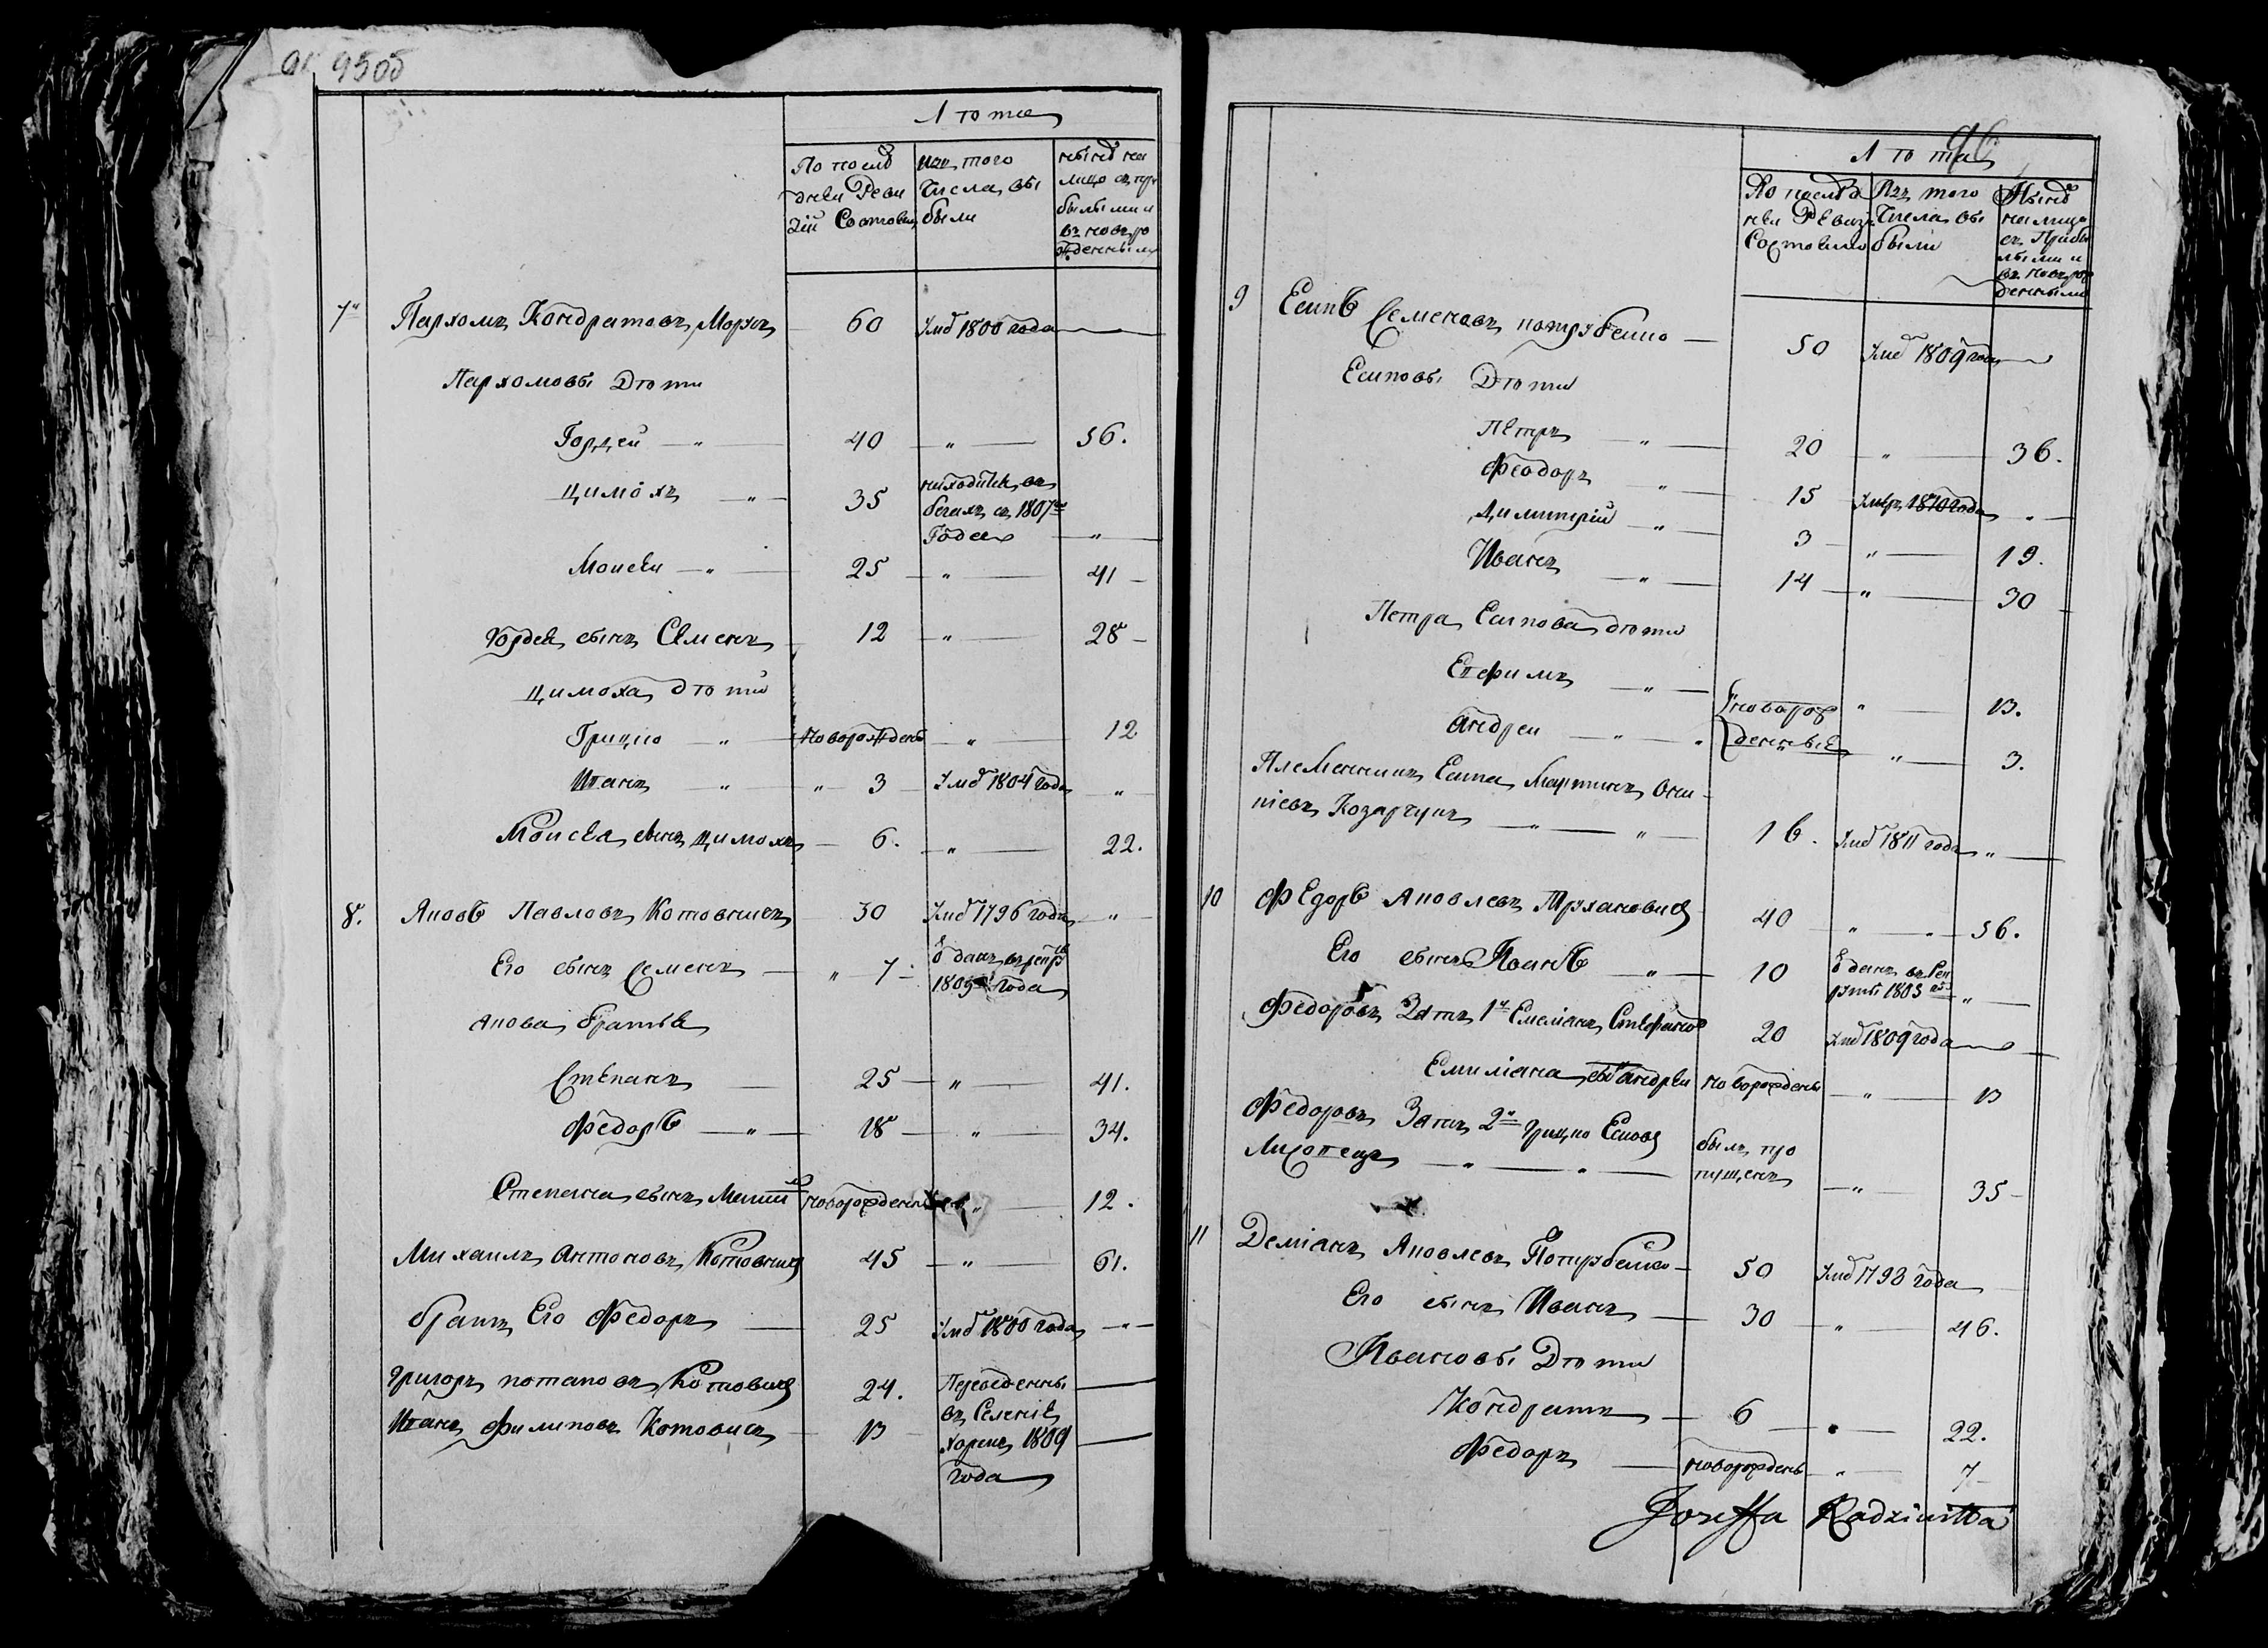 95об
Лѣта
По послѣ дней Реви зіи Состояли
изъ того Числа вы были
нынѣ на лицо съ при былыми и въ новь ро жденными
7й Пархомъ Кондратовъ Морзъ 60 Умѣ 1800 года
Пархомовы Дѣти
Гордей — „ — 40 „ — 56.
Цимохъ — „ — 35 находится въ бегахъ съ 1807го Года „
Моисей — „ — 25 — „ — 41 —
Гордея сынъ Семенъ 12 — „ — 28 —
Цимоха дѣти
Грицко — „ — новорожденъ — „ — 12
Иванъ — „ — „ 3 Умѣ 1804 года „
Моисея сынъ Цимохъ — 6. — „ — 22.
8. Яковъ Павловъ Котовичъ 30 Умѣ 1796 года „
Его сынъ Семенъ — „ 7 — Отданъ въ рекр 1805 года
Якова братья
Степанъ — 25 — „ — 41.
Федоръ — „ — 18 — „ — 34.
Степана сынъ новорожденъ „ — 12.
Михаилъ Антоновъ Котовичъ 45 — „ — 61.
братъ Его Федоръ — 25 Умѣ 1800 года — „ —
Григоръ потаповъ Котовичъ 24. Переведенны
Иванъ Филиповъ Котовичъ 13 въ Селеніе
1809
года
96
Лѣта
По послѣд ней Ревизіи Состояли
Изъ того Числа вы были
Нынѣ на лицо съ Прибы лыми и въ новь рож денными
9 Есипъ Семеновъ потрубейко — 50 Умѣ 1809 года
Есиповы Дѣти
Петръ — „ — 20 — „ — 36.
Феодоръ „ — 15 Умеръ 1810 года „ —
Димитрій — „ — 3 — „ — 19.
Иванъ — „ — 14 — „ — 30
Петра Есипова дѣти
Ефимъ — „ — новорож „ — 13.
Андрей — „ — денные „ — 3.
Племянникъ Есипа Мартинъ
Козарчукъ — „ — 16. Умѣ 1811 года „ —
10 Федоръ Яковлевъ Трухановичъ 40 „ — „ — 56.
Его сынъ Иванъ — „ — 10 Отданъ въ Рек руты 1805 го „ —
Федоровъ Зять 1й Емеліянъ Стефановъ 20 Умѣ 1809 года
Емиліана сынъ Андрей новорожденъ — „ — 13
Федоровъ Зять 2й Грицко былъ про
— „ — „ — пущенъ — „ — 35 —
11 Деміанъ Яковлевъ Потрубейко — 50 Умѣ 1793 года
Его сынъ Иванъ — 30 — „ — 46.
Ивановы Дѣти
Кондратъ — 6 — „ — 22.
Федоръ — новорожденъ — „ — 7 —
Joseffa